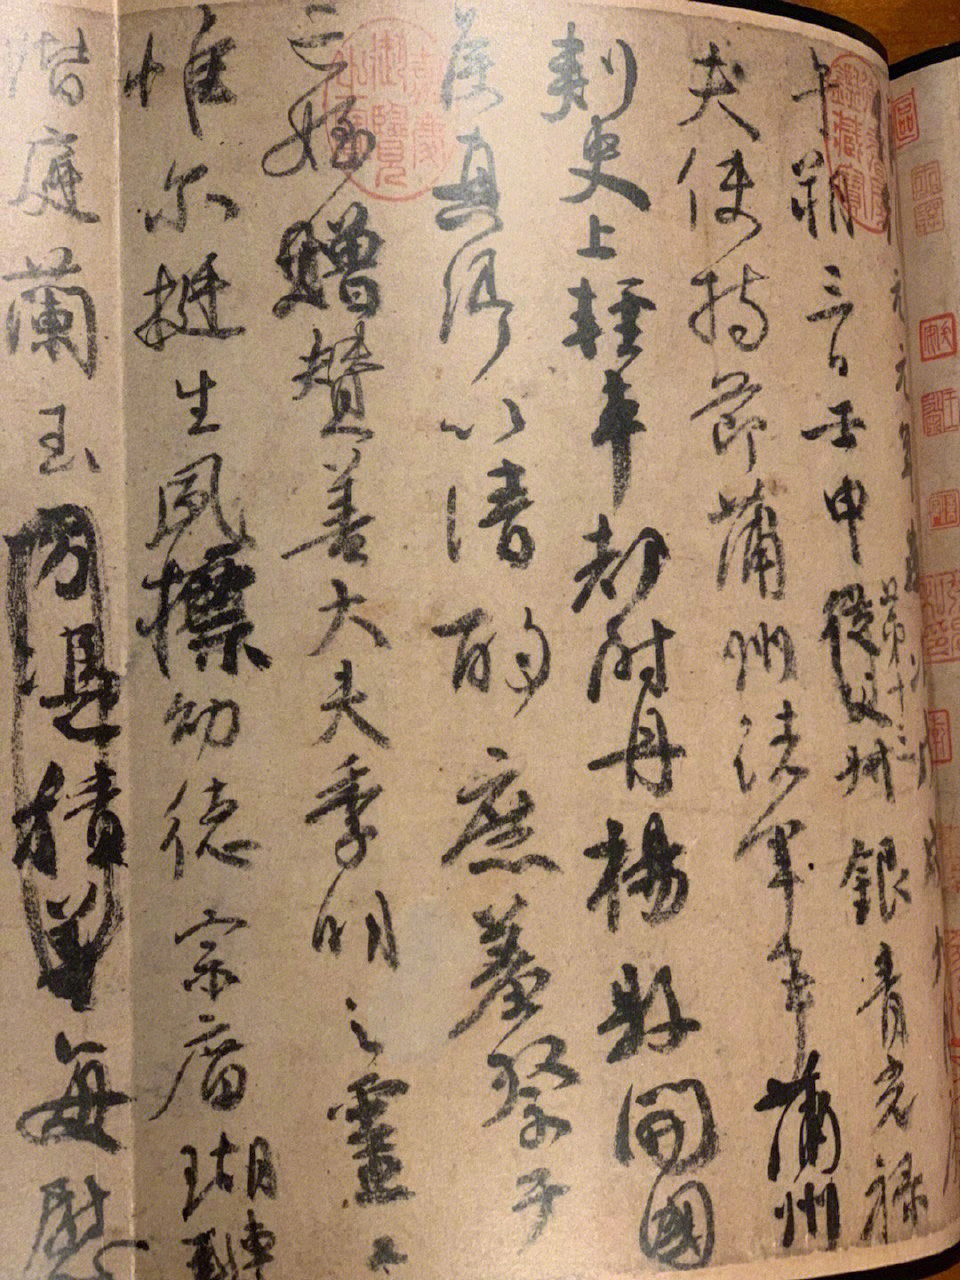 元元年
午朔三日壬申第十三從父叔銀青光祿
夫使持節蒲州諸軍事蒲州
刺史上輕車都尉丹楊縣開國
侯真卿以清酌庶羞祭于
亡姪贈贊善大夫季明之靈曰
惟尔挺生夙標幼德宗廟瑚璉
階庭蘭玉方憑積善每慰
嘉慶御覽之寶